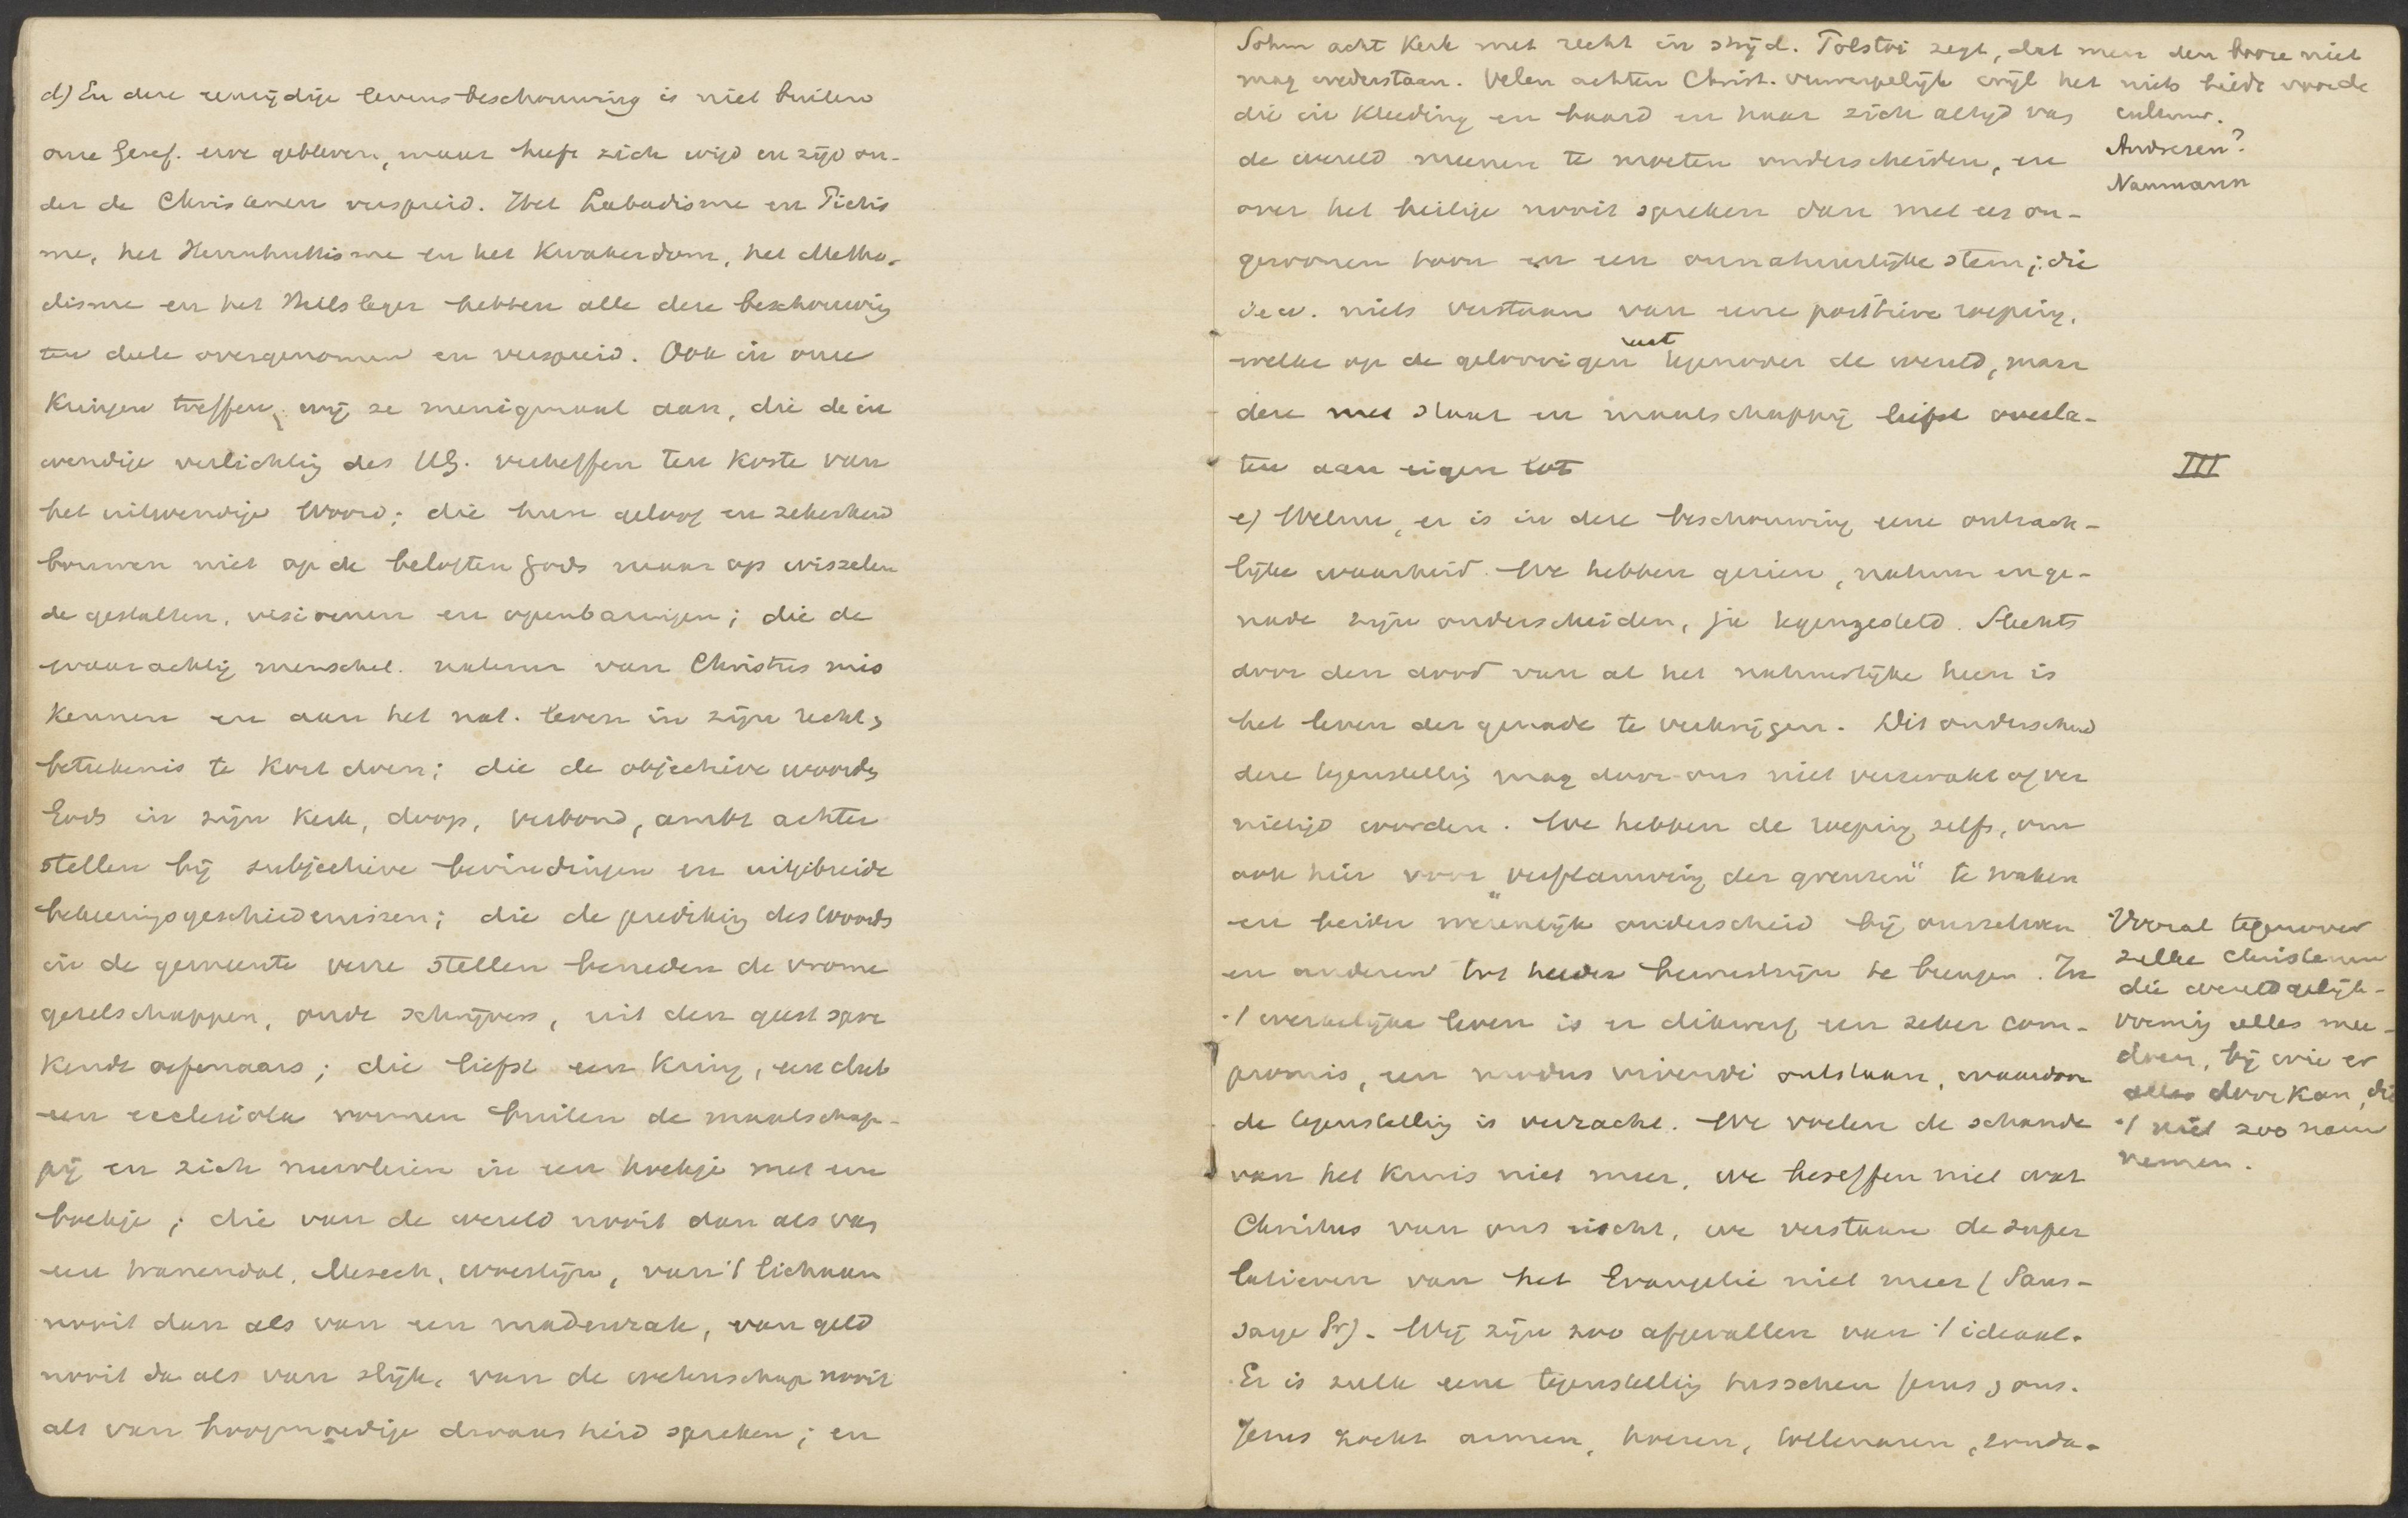 d) En deze eenzijdige levensbeschouwing is niet buiten
onze Geref. erve gebleven, maar heeft zich wijd en zijd on-
der de Christenen verspreid. Het Labadisme en Piëtis
me, het Herrnhuttisme en het Kwakerdom, het Metho-
disme en het Heilsleger hebben alle deze beschouwing
ten deele overgenomen en verspreid. Ook in onze
Kringen treffen wij ze menigmaal aan, die de in
wendige verlichting des HG. verheffen ten koste van
het uitwendige Woord; die hun geloof en zekerheid
bouwen niet op de beloften Gods maar op wisselen
de gestalten, visioenen en openbaringen; die de
waarachtig menschel. natuur van Christus mis
kennen en aan het nat. leven in zijn recht &
beteekenis te kort doen; die de objectieve woorden
Gods in zijn Kerk, doop, verbond, ambt achter
stellen bij subjectieve bevindingen en uitgebreide
bekeeringsgeschiedenissen; die de prediking des Woords
in de gemeente verre stellen beneden de vrome
gezelschappen, oude schrijvers, uit den geest spre
kende oefenaars; die liefst een Kring, een club
een ecclesiola vormen buiten de maatschap-
pij en zich nuvleien in een hoekje met een
boekje; die van de wereld nooit dan als van
een tranendal, Mesech, woestijn, van 't lichaam
nooit dan als van een madenzak, van geld
nooit da als van slijk, van de wetenschap nooit
als van hoogmoedige dwaasheid spreken; en
Sohm acht Kerk met recht in strijd. Tolstoi zegt, dat men den booze niet
mag wederstaan. Velen achten Christ. verwerpelijk wijl het niets biedt voor de
cultuur.
Andresen?
Naumann
die in Kleeding en baard en haar zich altijd van
de wereld meenen te moeten onderscheiden, en
over het heilige nooit spreken dan met een on-
gewonen toon en een onnatuurlijke stem; die
i.e.w. niets verstaan van eene positieve roeping,
welke op de geloovigen rust tegenover de wereld, maar
deze met staat en maatschappij liefst overla-
ten aan eigen lot
III
e) Welnu, er is in deze beschouwing eene ontzach-
lijke waarheid. We hebben gezien, natuur en ge-
nade zijn onderscheiden, ja tegengesteld. Slechts
door den dood van al het natuurlijke heen is
het leven der genade te verkrijgen. Dit onderscheid
deze tegenstelling mag door ons niet verzwakt of ver
nietigd worden. We hebben de roeping zelfs, om
ook hier voor "verflauwing der grenzen" te waken
en beider wezenlijk onderscheid bij onszelven
en anderen tot helder bewustzijn te brengen. In
't werkelijke leven is er dikwerf een zeker com-
promis, een modus vivendi ontstaan, waardoor
de tegenstelling is verzacht. We voelen de schande
van het kruis niet meer, we beseffen niet wat
Christus van ons eischt, we verstaan de super
latieven van het Evangelie niet meer (Saus-
saye Pr). Wij zijn zoo afgevallen van 't ideaal.
Er is zulk eene tegenstelling tusschen Jezus & ons.
Jezus zocht armen, hoeren, tollenaren, zonda-
Vooral tegenover
zulke christenen
die wereldgelijk-
vormig alles mee-
doen, bij wie er
alles door kan, die
't niet zoo nauw
nemen.